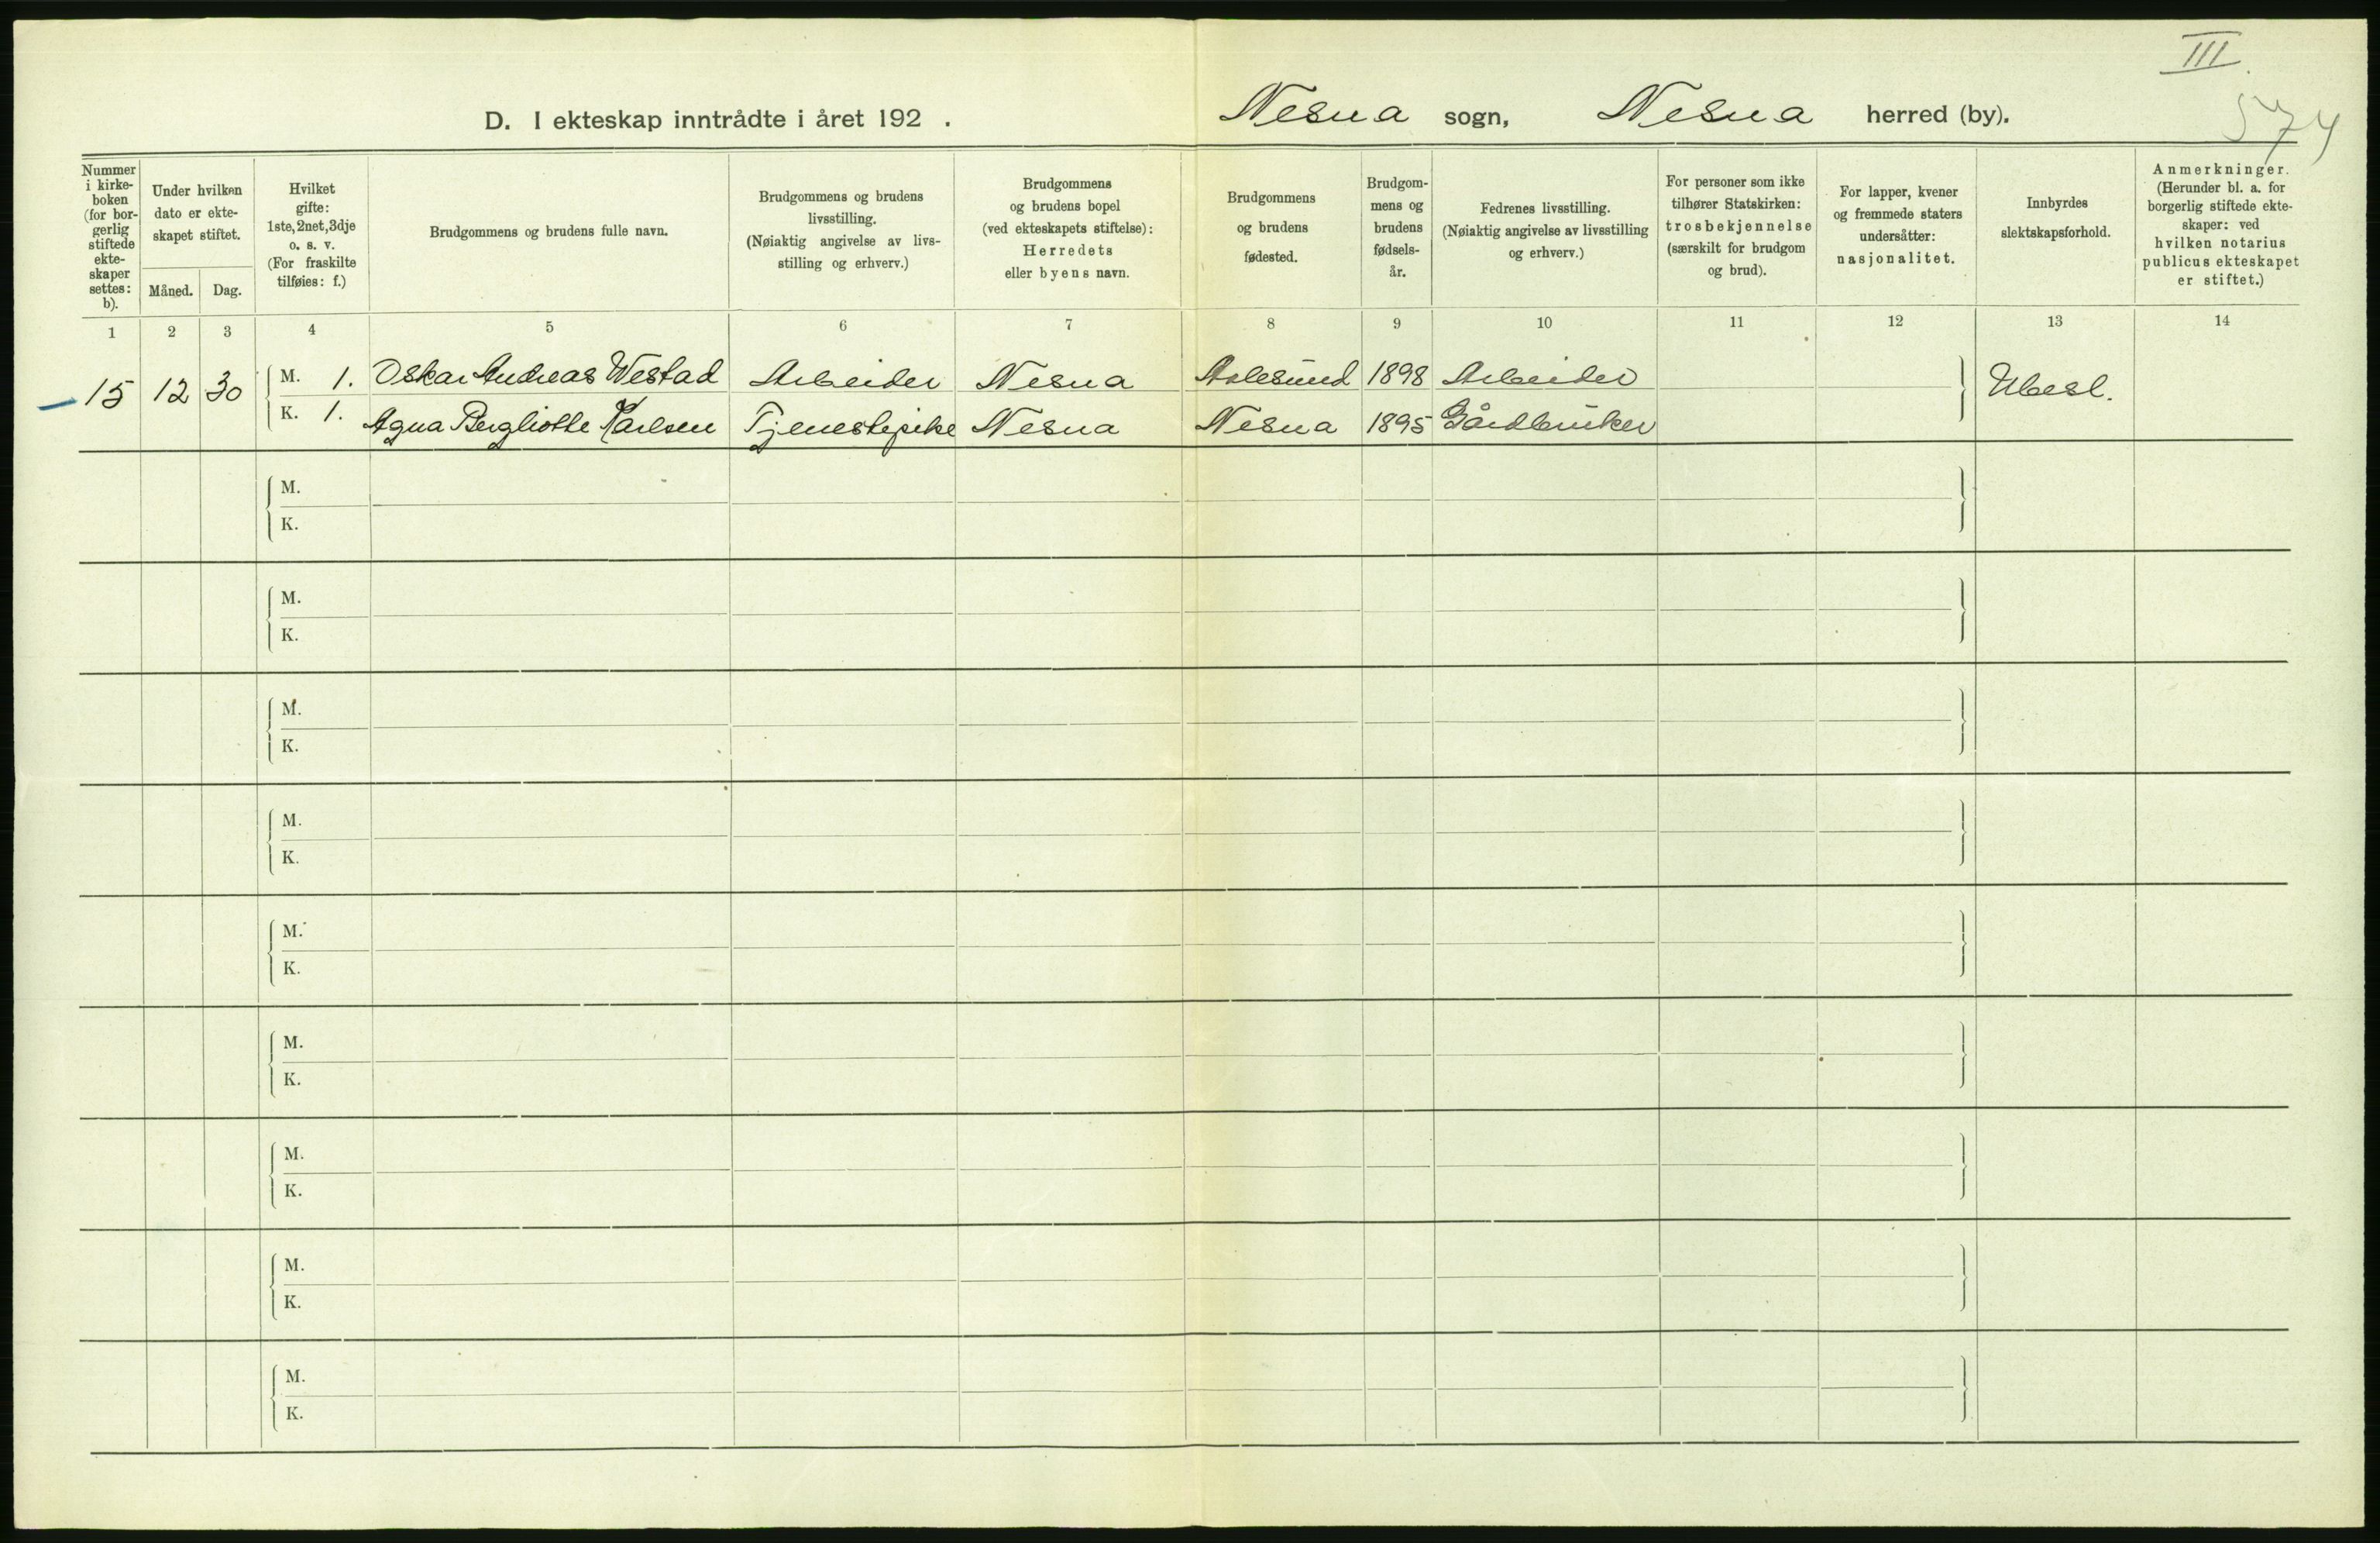 III.
574
D. I ekteskap inntrådte i året 192 . Nesna sogn, Nesna herred (by).
Nummer i kirke-boken (for bor-gerlig stiftede ekte-skaper settes: b).
Under hvilken dato er ekte-skapet stiftet.
Måned. Dag.
Hvilket gifte: 1ste, 2net, 3dje o. s. v. (For fraskilte tilføies: f.)
Brudgommens og brudens fulle navn.
Brudgommens og brudens livsstilling. (Nøiaktig angivelse av livs-stilling og erhverv.)
Brudgommens og brudens bopel (ved ekteskapets stiftelse): Herredets eller byens navn.
Brudgommens og brudens fødested.
Brudgom-mens og brudens fødsels-år.
Fedrenes livsstilling. (Nøiaktig angivelse av livsstilling og erhverv.)
For personer som ikke tilhører Statskirken: trosbekjennelse (særskilt for brudgom og brud).
For lapper, kvener og fremmede staters undersåtter: nasjonalitet.
Innbyrdes slektskapsforhold.
Anmerkninger. (Herunder bl. a. for borgerlig stiftede ekte-skaper: ved hvilken notarius publicus ekteskapet er stiftet.)
1 2 3 4 5 6 7 8 9 10 11 12 13 14
15 12 30 M. 1. Oskar Andreas Westad Arbeider Nesna Aalesund 1898 Arbeider Ubesl.
K. 1. Agna Bergliotte Karlsen Tjenestepike Nesna Nesna 1895 Gårdbruker
M.
K.
M.
K.
M.
K.
M.
K.
M.
K.
M.
K.
M.
K.
M.
K.
M.
K.